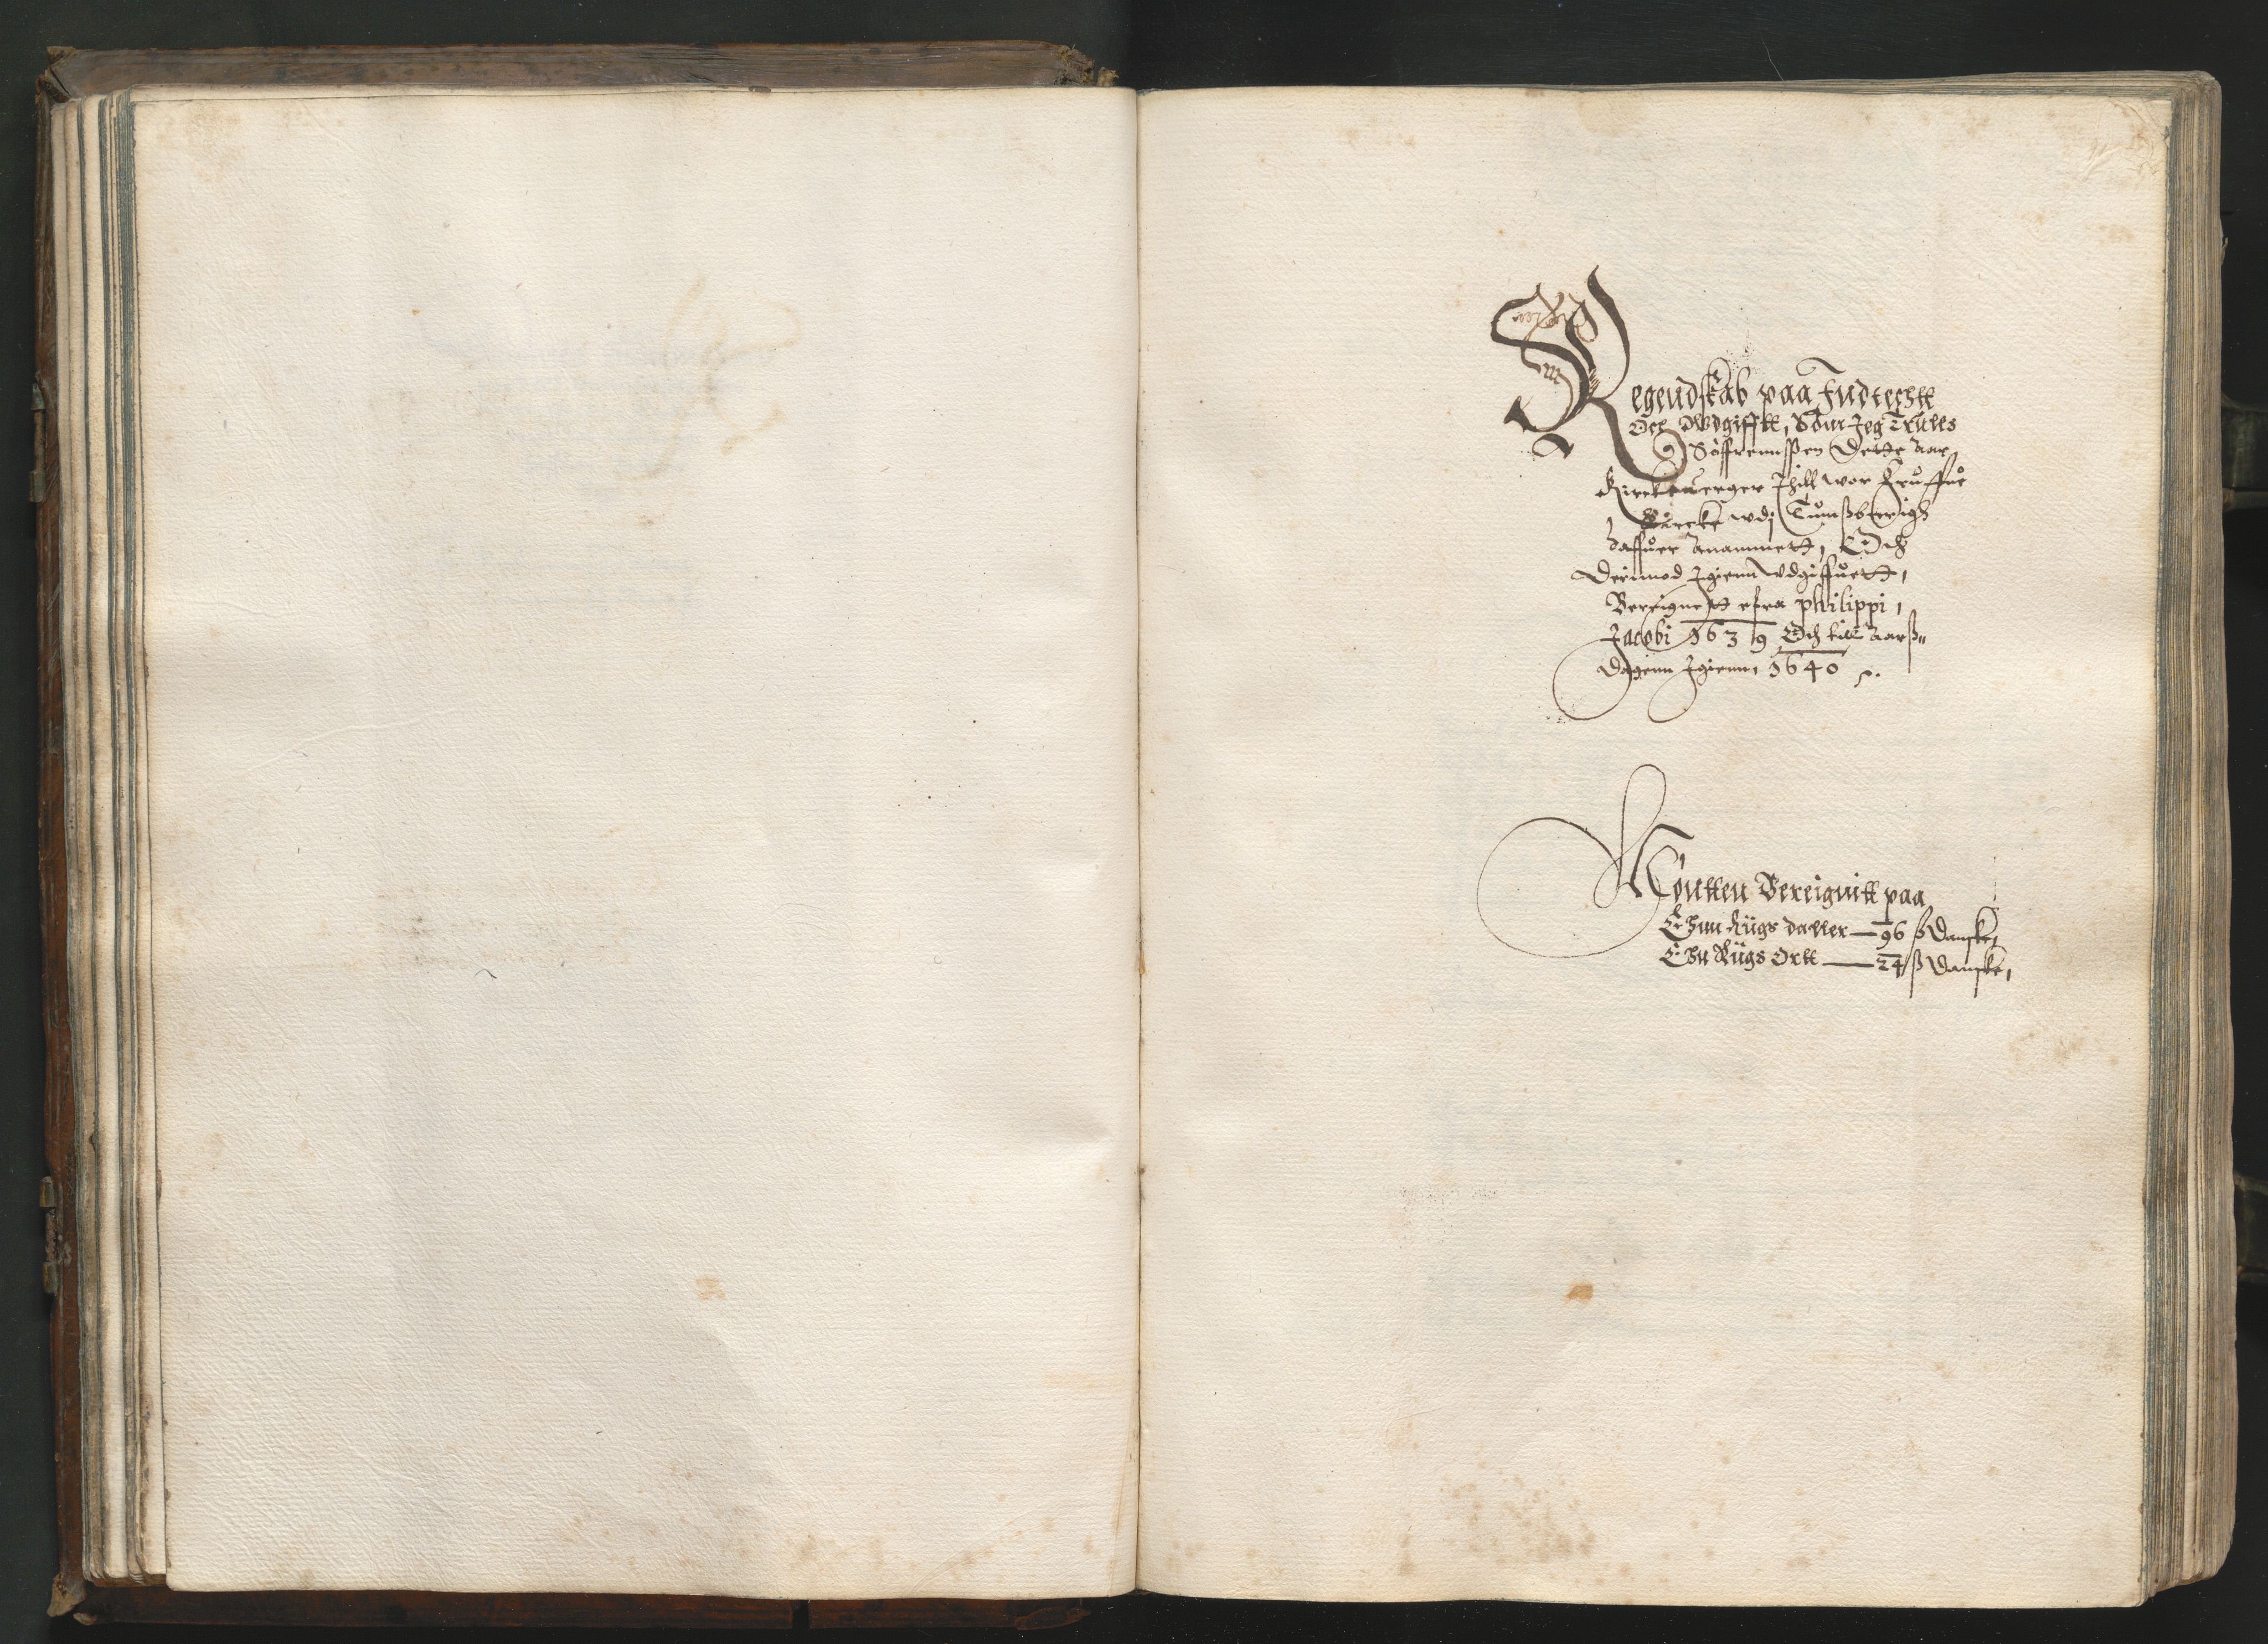 Regendskab paa Indtegtt
Och Wdgifftt, Som Jeg Trules
Söffrennssen Dette Aar
Kirckewerger Thill wor Fruffue
Kircke wdj Tunsberigh
Haffuer Anammett, Och
Derimod Igienn Vdgiffuett,
Bereignett efra Philippi,
Jacobi 1639 Och till Aarß„
Dagenn Igienn, 1640
Montten Bereignitt paa
Ehnn Rügs daller — 96 ß Danske,
Ehn Rügs Ortt — 24 ß Danske,